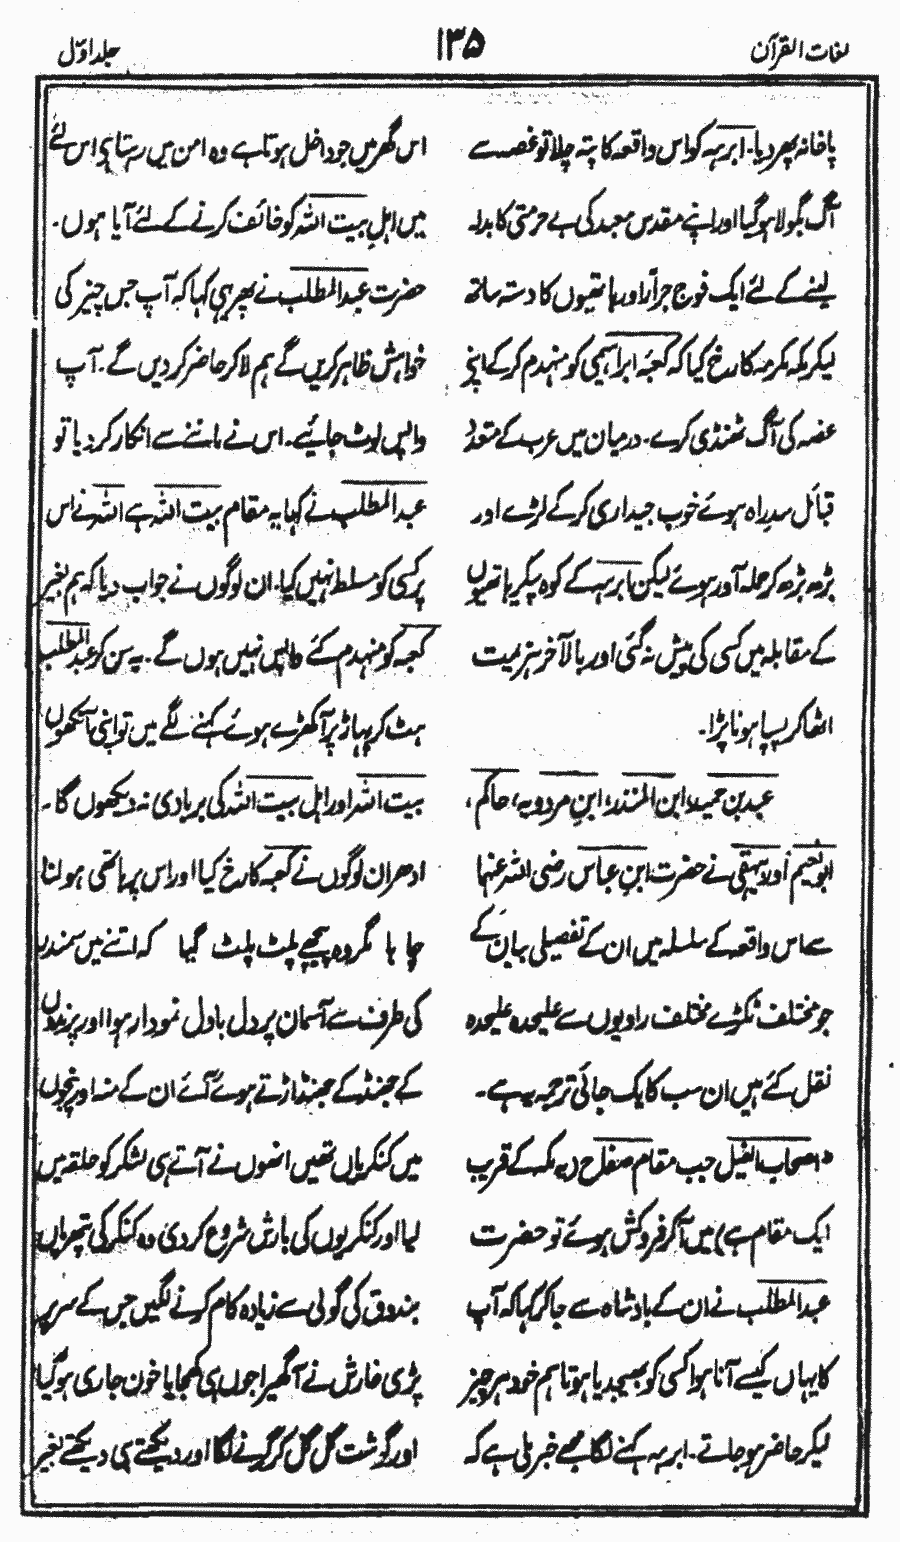 لغات القرآن
۱۳۵
جلد اوّل
پاخانہ پھر دیا۔ ابرہہ کو اس واقعہ کا پتہ چلا تو غصہ سے
آگ بگولا ہو گیا اور اپنے مقدس معبد کی بے حرمتی کا بدلہ
لینے کے لئے ایک فوج جرار اور ہاتھیوں کا دستہ ساتھ
لیکر مکہ مکرمہ کا رخ کیا کہ کعبۂ ابراہیمی کو منہدم کر کے اپنے
غصہ کی آگ ٹھنڈی کرے۔ درمیان میں عرب کے متعدد
قبائل سدِراہ ہوئے خوب جیداری کر کے لڑے اور
بڑھ بڑھ کر حملہ آور ہوئے لیکن ابرہہ کے کوہ پیکر ہاتھیوں
کے مقابلہ میں کسی کی پیش نہ گئی اور بالآخر ہزیمت
اٹھا کر پسپا ہونا پڑا۔
عبد بن حمید، ابن المنذر، ابنِ مردویہ، حاکم،
ابونعیم اور بیہقی نے حضرت ابنِ عباس رضی اللہ عنہما
سے اس واقعہ کے سلسلہ میں ان کے تفصیلی بیان کے
جو مختلف ٹکڑے مختلف راویوں سے علیحدہ علیحدہ
نقل کئے ہیں ان سب کا یک جائی ترجمہ یہ ہے۔
"اصحاب الفیل جب مقام صفاح (یہ مکہ کے قریب
ایک مقام ہے) میں آ کر فروکش ہوئے تو حضرت
عبدالمطلب نے ان کے بادشاہ سے جا کر کہا کہ آپ
کا یہاں کیسے آنا ہوا کسی کو بھیجدیا ہوتا ہم خود ہر چیز
لیکر حاضر ہو جاتے۔ ابرہہ کہنے لگا مجھے خبر ملی ہے کہ
اس گھر میں جو داخل ہوتا ہے وہ امن میں رہتا ہے اس لئے
میں اہلِ بیت اللہ کو خائف کرنے کے لئے آیا ہوں۔
حضرت عبدالمطلب نے پھر یہی کہا کہ آپ جس چیز کی
خواہش ظاہر کریں گے ہم لا کر حاضر کر دیں گے۔ آپ
واپس لوٹ جائیے۔ اس نے ماننے سے انکار کر دیا تو
عبدالمطلب نے کہا یہ مقام بیت اللہ ہے اللہ نے اس
پر کسی کو مسلط نہیں کیا۔ ان لوگوں نے جواب دیا کہ ہم بغیر
کعبہ کو منہدم کئے واپس نہیں ہوں گے۔ یہ سن کر عبدالمطلب
ہٹ کر پہاڑ پر آ کھڑے ہوئے کہنے لگے میں تو اپنی آنکھوں
بیت اللہ اور اہلِ بیت اللہ کی بربادی نہ دیکھوں گا۔
ادھر ان لوگوں نے کعبہ کا رخ کیا اور اس پر ہاتھی ہولنا
چاہا مگر وہ پیچھے پلٹ پلٹ گیا کہ اتنے میں سمندر
کی طرف سے آسمان پر دل بادل نمودار ہوا اور پرندوں
کے جھنڈ کے جھنڈ اڑتے ہوئے آئے ان کے منہ اور پنجوں
میں کنکریاں تھیں انھوں نے آتے ہی لشکر کو حلقہ میں
لیا اور کنکریوں کی بارش شروع کر دی وہ کنکر کی پتھریاں
بندوق کی گولی سے زیادہ کام کرنے لگیں جس کے سر پر
پڑی خارش نے آ گھیرا جوں ہی کھجایا خون جاری ہو گیا
اور گوشت گل گل کر گرنے لگا اور دیکھتے ہی دیکھتے بغیر